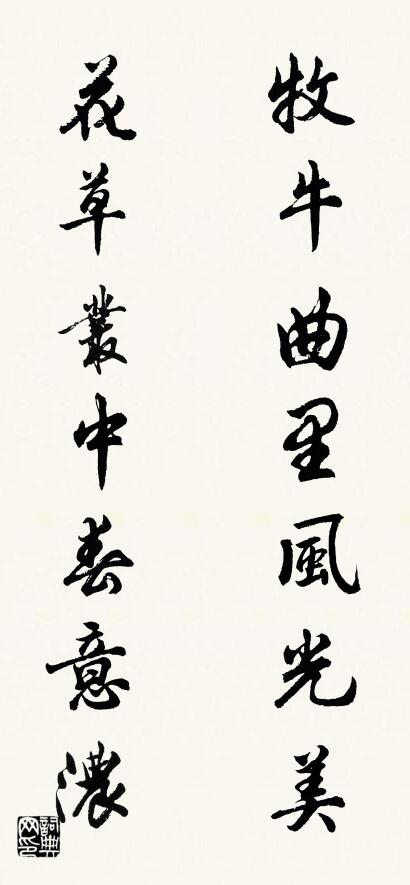 牧牛曲里風光美
花草叢中春意濃
詞典网印